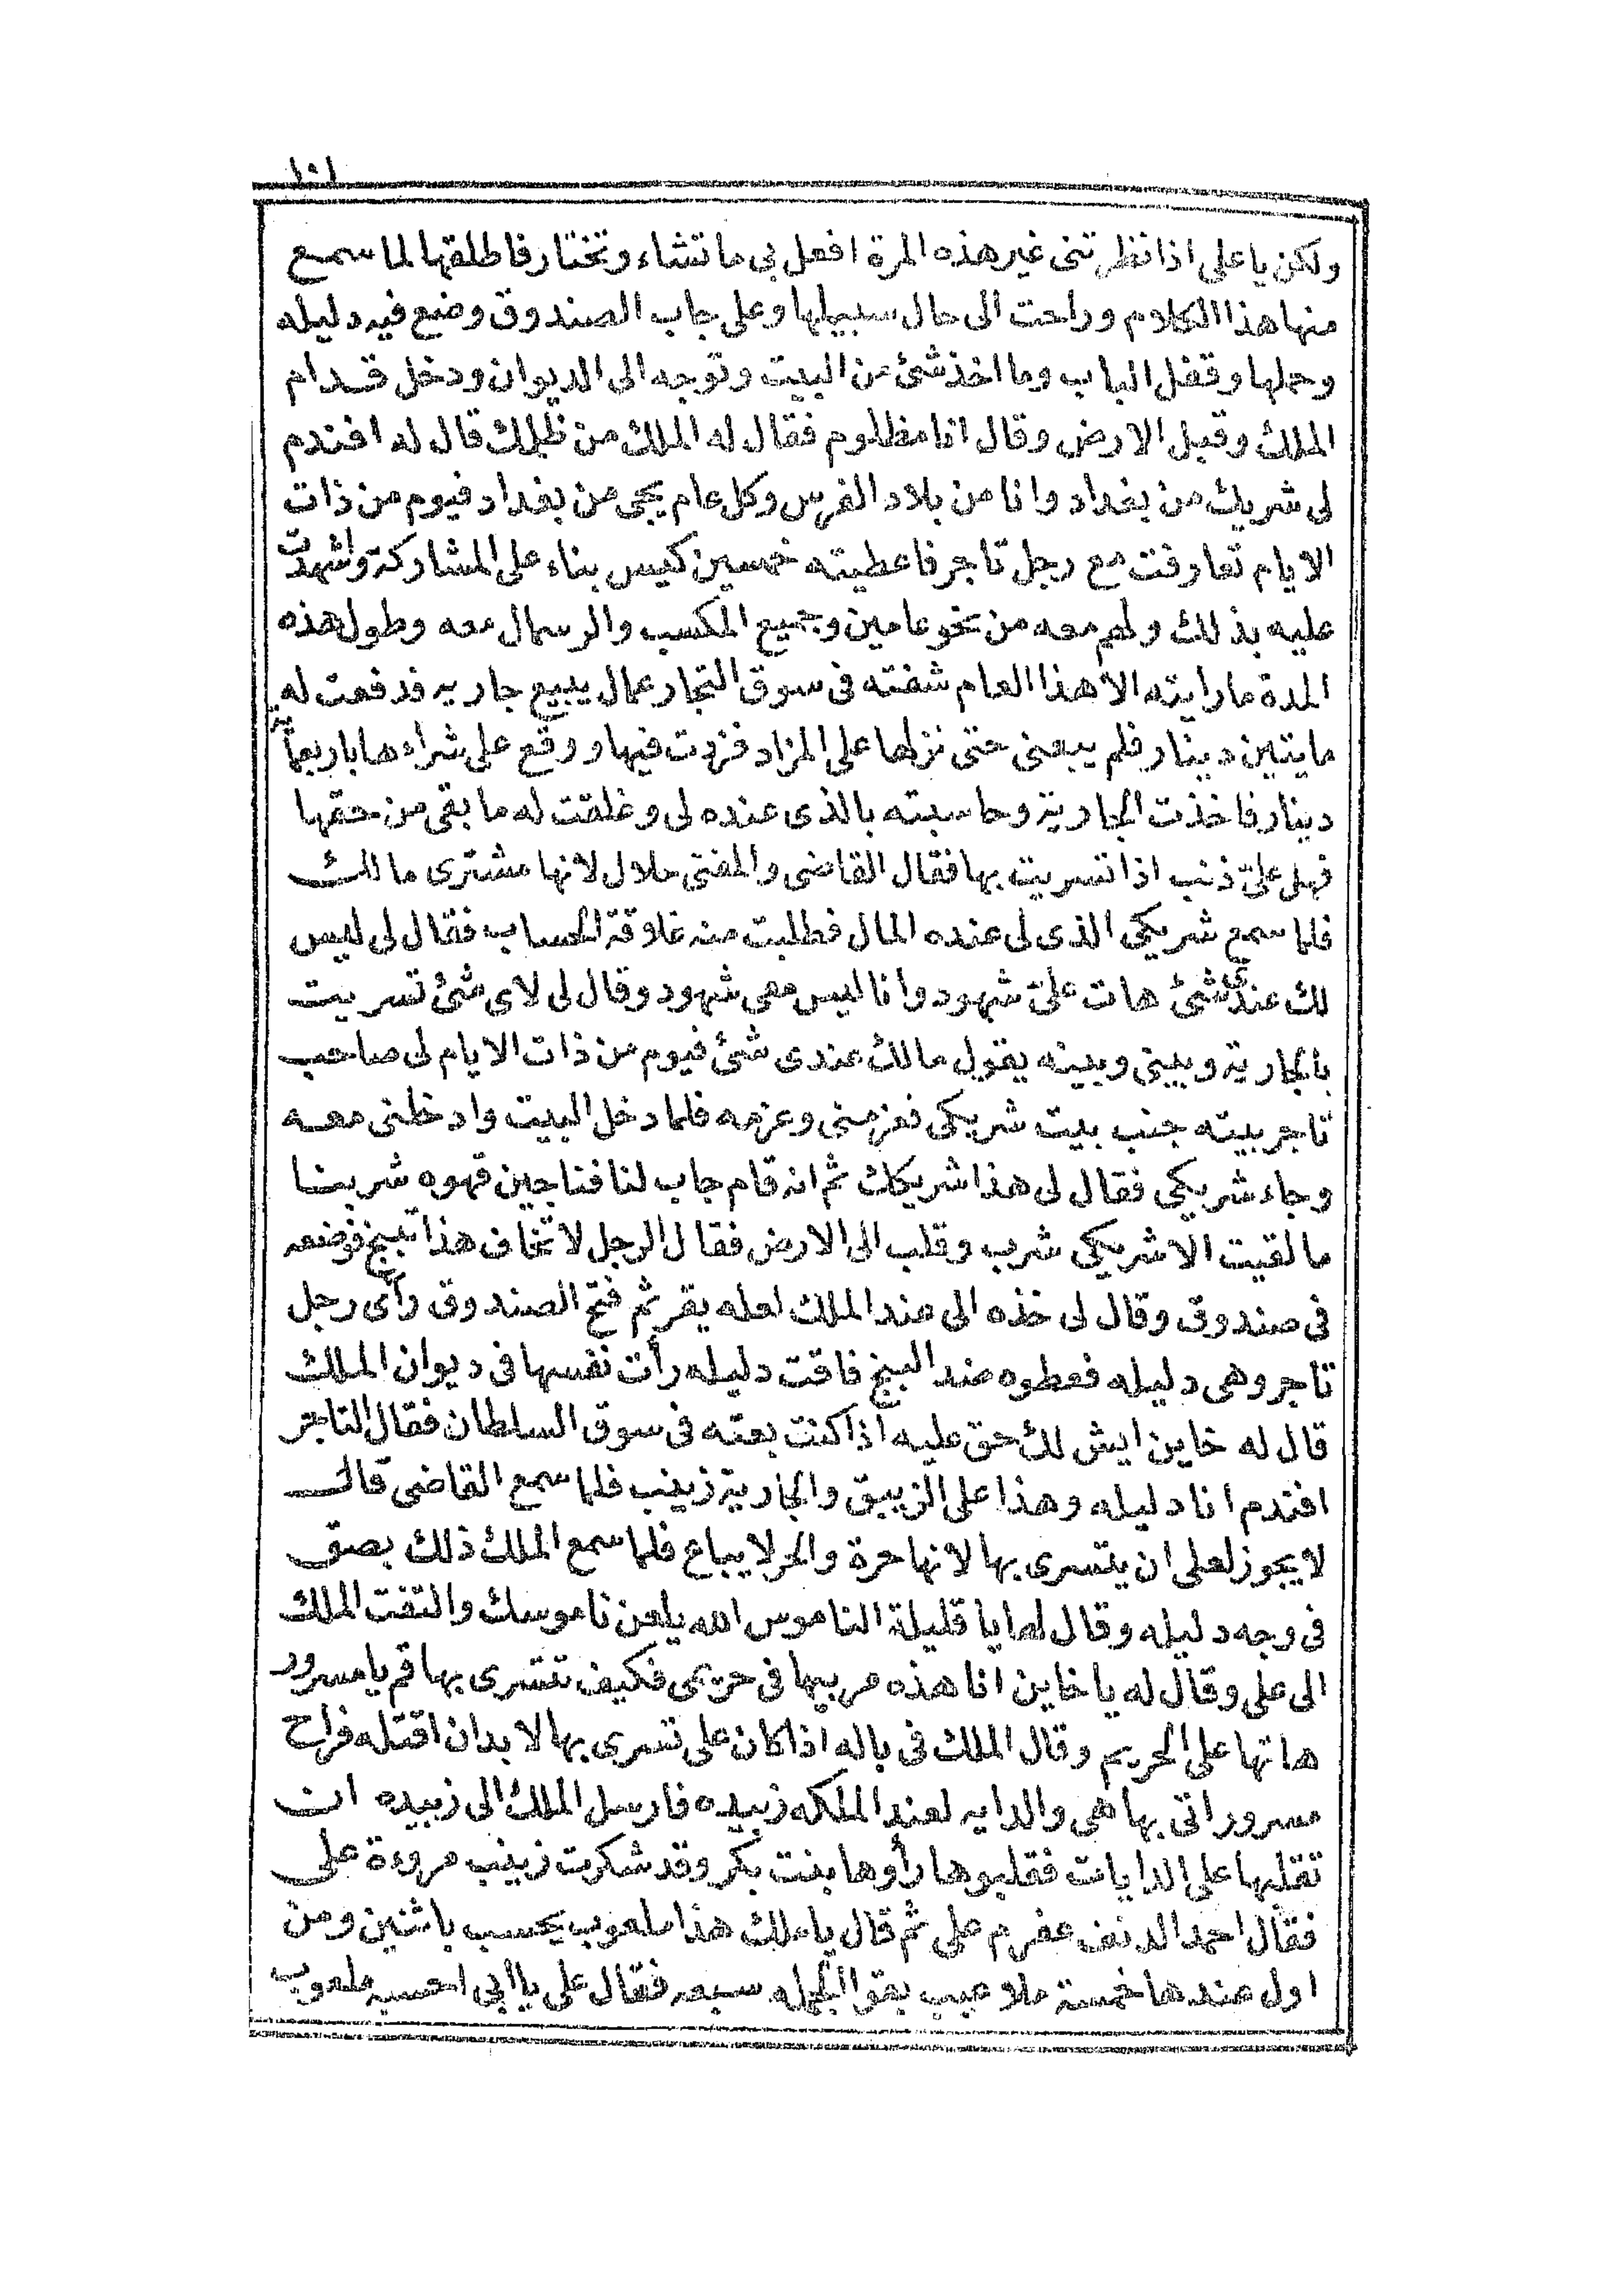 ولكن يا على اذا نظرتنى غير هذه المرة افعل بى ما تشاء وتختار فاطلقها لما سمع
منها هذا الكلام وراحت الى حال سبيلها وعلى جاب الصندوق وضع فيه دليله
وحملها وقفل الباب وما اخذ شئ من البيت وتوجه الى الديوان ودخل قدام
الملك وقبل الارض وقال انا مظلوم فقال له الملك من ظلمك قال له افندم
لى شريك من بغداد وانا من بلاد الفرس وكل عام يجى من بغداد فيوم من ذات
الايام تعارفت مع رجل تاجر فاعطيته خمسين كيس بناء على المشاركة واشهدت
عليه بذلك ولهم معه من نحو عامين وجميع المكسب والرسمال معه وطول هذه
المدة ما رايته الا هذا العام شفته فى سوق التجار عمال يبيع جاريه فدفعت له
مايتين دينار فلم يبعنى حتى نزلها على المزاد فزدت فيها ووقع على شراءها باربعماية
دينار فاخذت الجارية وحاسبته بالذى عنده لى وغلقت له ما بقى من حقها
فهل علىّ ذنب اذا تسريت بها فقال القاضى والمفتى حلال لانها مشترى مالك
فلما سمع شريكى الذى لى عنده المال فطلبت منه غلاقة الحساب فقال لى ليس
لك عندى شئ هات علىّ شهود وانا ليس معى شهود وقال لى لاى شئ تسريت
بالجارية وبينى وبينه يقول مالك عندى شئ فيوم من ذات الايام لى صاحب
تاجر بيته جنب بيت شريكى فعزمنى وعزمه فلما دخل البيت وادخلنى معه
وجاء شريكى فقال لى هذا شريكك ثم انه قام جاب لنا فناجين قهوه شربنا
ما لقيت الا شريكى شرب وقلب الى الارض فقال الرجل لا تخاف هذا تبنج فوضعه
فى صندوق وقال لى خذه الى عند الملك لعله يقر ثم فتح الصندوق رأى رجل
تاجر وهى دليله فعطوه ضد البنج فاقت دليله رأت نفسها فى ديوان الملك
قال له خاين ايش لك حق عليه اذا كنت بعته فى سوق السلطان فقال التاجر
افندم انا دليله وهذا على الزيبق والجارية زينب فلما سمع القاضى قال
لا يجوز لعلى ان يتسرى بها لانها حرة والحر لا يباع فلما سمع الملك ذلك بصق
فى وجه دليله وقال لها يا قليلة الناموس الله يلعن ناموسك والتفت الملك
الى على وقال له يا خاين انا هذه مربيها فى حريمى فكيف تتسرى بها قم يا مسرور
هاتها على الحريم وقال الملك فى باله اذا كان على تسرى بها لا بد ان اقتله فراح
مسرور اتى بها هى والدايه لعند الملكه زبيده فارسل الملك الى زبيده ان
تقلبها على الدايات فقلبوها رأوها بنت بكر وقد شكرت زينب مروءة على
فقال احمد الدنف عفرم على ثم قال يا ملك هذا ملعوب يحسب باثنين ومن
اول عندها خمسة ملاعيب بقوا الجمله سبعه فقال على يا ابى احسبه ملعوب